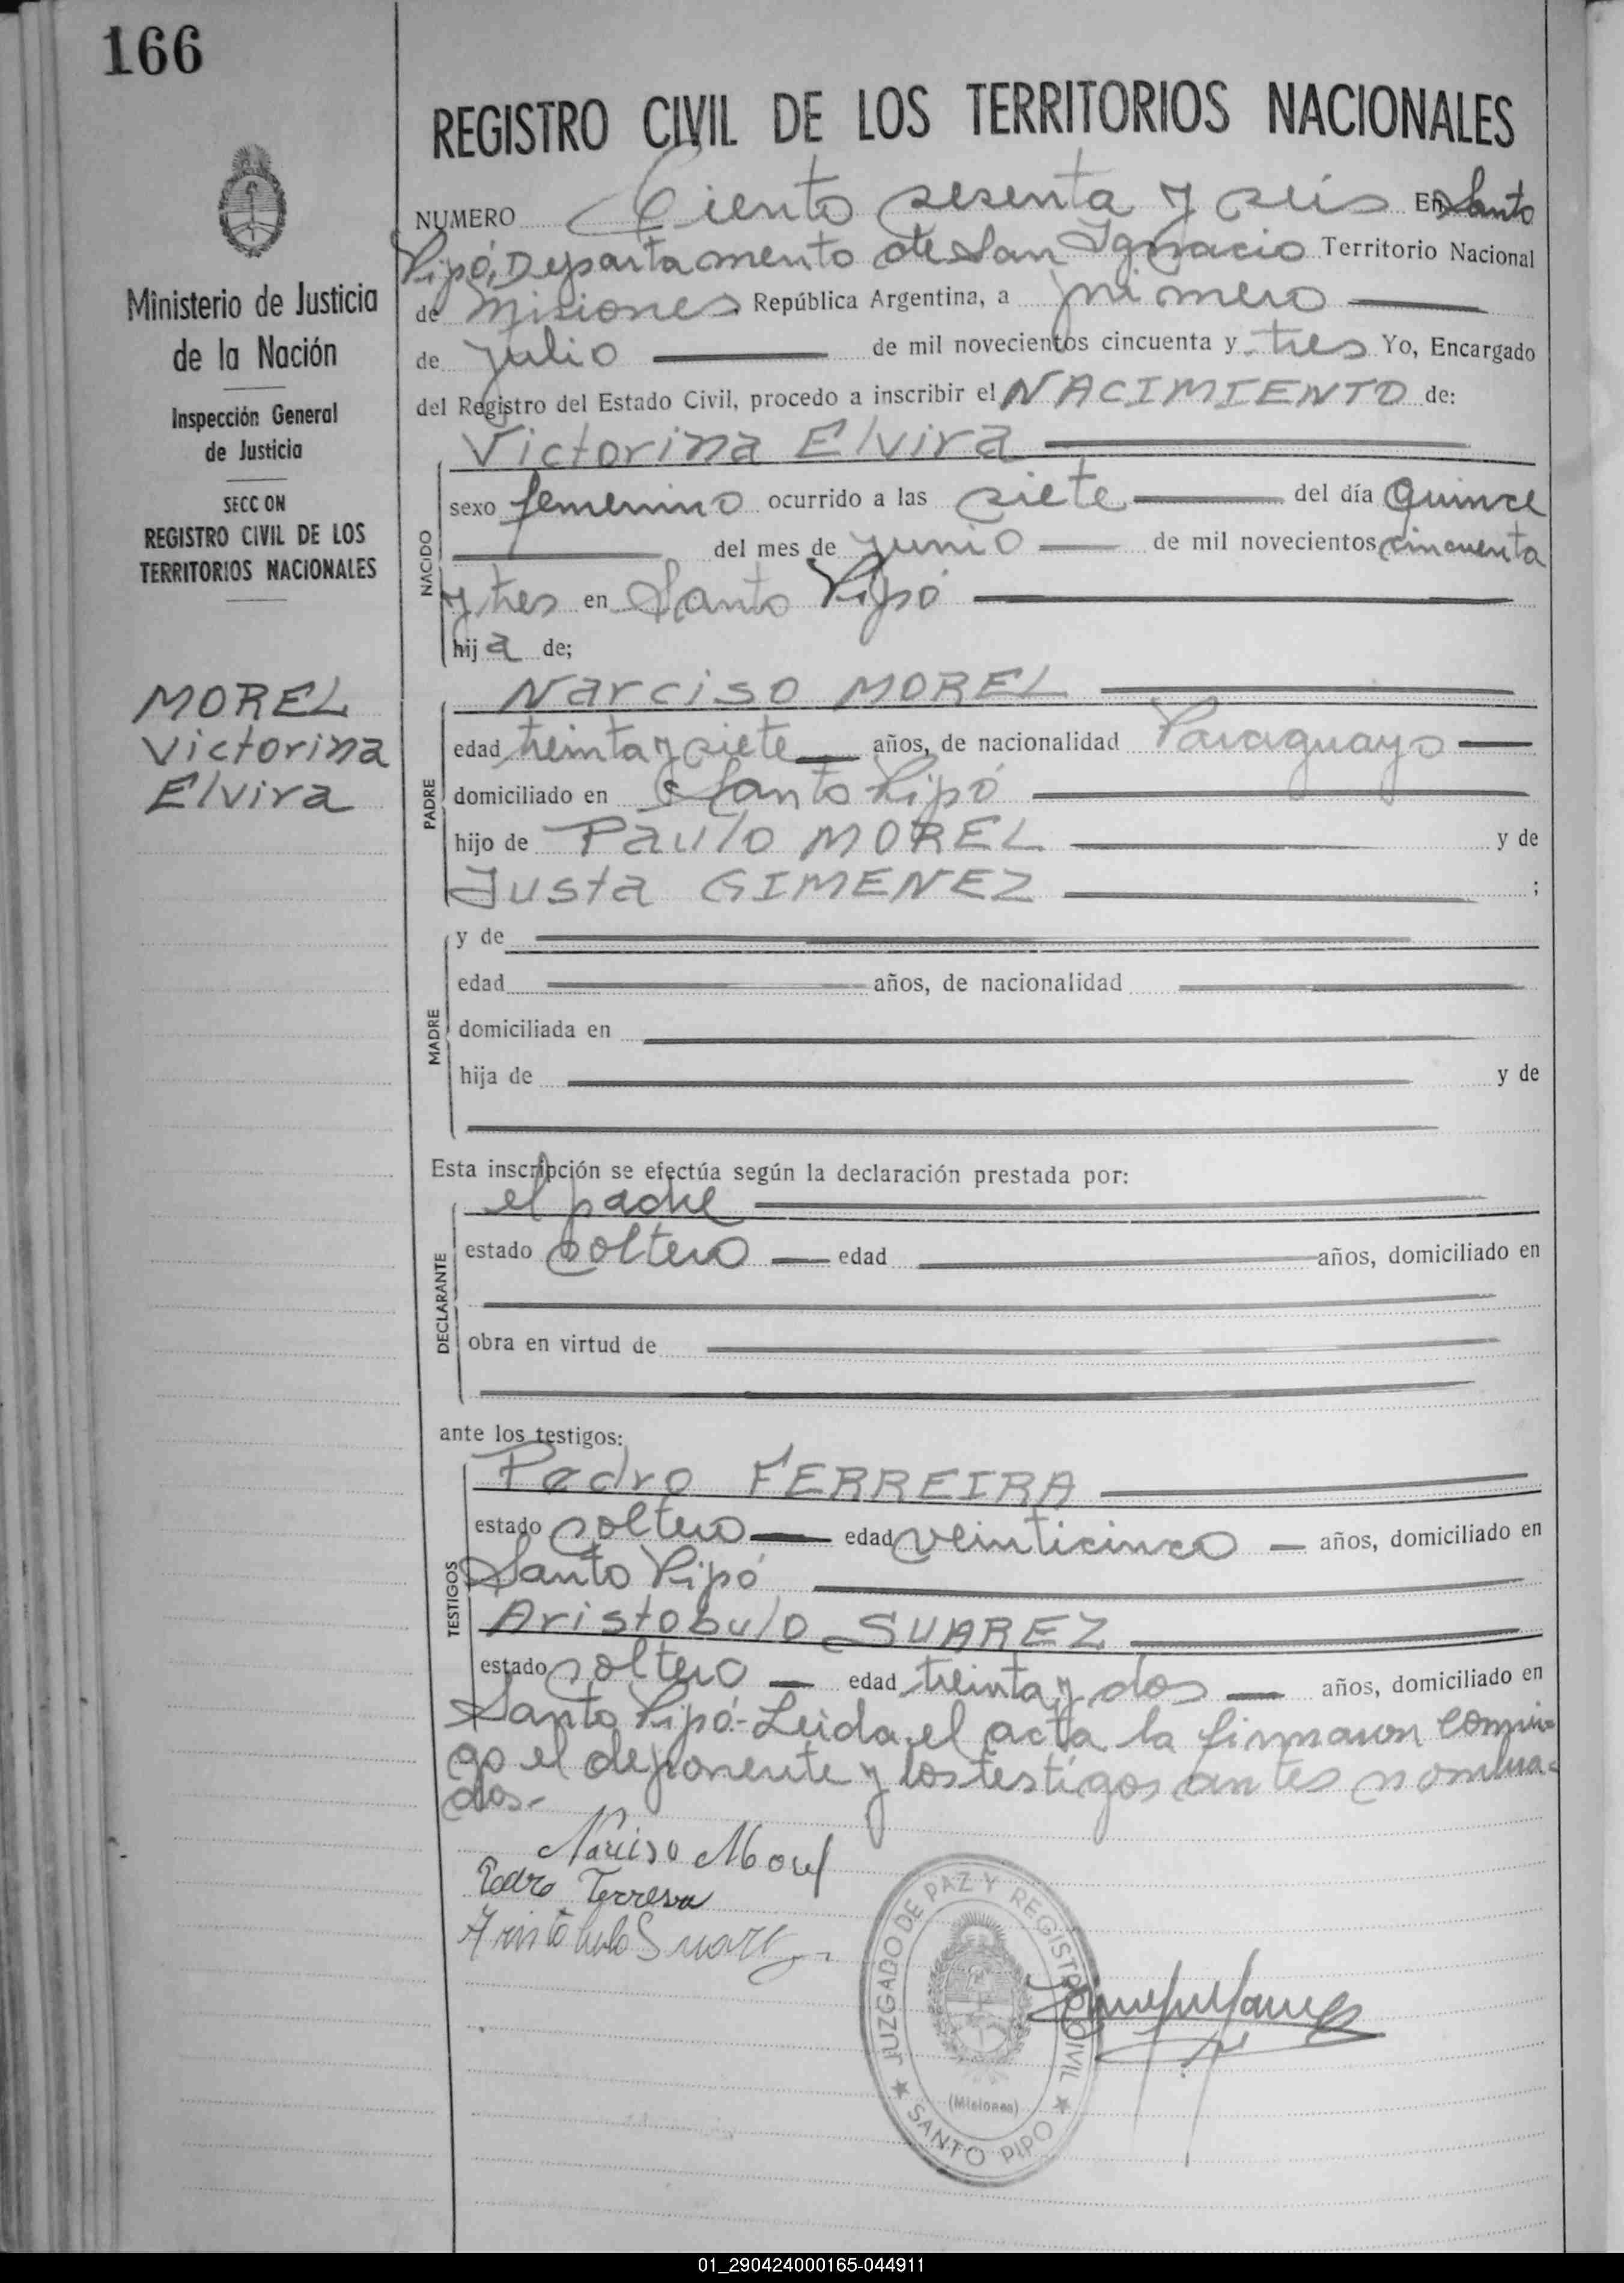 166
REGISTRO CIVIL DE LOS TERRITORIOS NACIONALES
Ministerio de Justicia
de la Nación
Inspección General
de Justicia
SECC ON
REGISTRO CIVIL DE LOS
TERRITORIOS NACIONALES
MOREL
Victorina
Elvira
NUMERO Ciento sesenta y seis En Santo
Pipó, Departamento de San Ignacio Territorio Nacional
de Misiones República Argentina, a primero
de julio de mil novecientos cincuenta y tres Yo, Encargado
del Registro del Estado Civil, procedo a inscribir el NACIMIENTO de:
Victorina Elvira
NACIDO
sexo femenino ocurrido a las siete del día quince
del mes de junio de mil novecientos cincuenta
y tres en Santo Pipó
hij a de;
PADRE
Narciso MOREL
edad treinta y siete años, de nacionalidad Paraguayo
domiciliado en Santo Pipó
hijo de Paulo MOREL y de
Justa GIMENEZ ;
MADRE
y de
edad años, de nacionalidad
domiciliada en
hija de y de
Esta inscripción se efectúa según la declaración prestada por:
DECLARANTE
el padre
estado soltero edad años, domiciliado en
obra en virtud de
ante los testigos:
TESTIGOS
Pedro FERREIRA
estado soltero edad veinticinco años, domiciliado en
Santo Pipó
Aristobulo SUAREZ
estado soltero edad treinta y dos años, domiciliado en
Santo Pipó.- Leida el acta la firmaron conmi=
go el deponente y los testigos antes nombra=
dos.-
Narciso Morel
Pedro Ferreira
Aristobulo Suarez
JUZGADO DE PAZ Y REGISTRO CIVIL
(Misiones)
SANTO PIPO
01_290424000165-044911